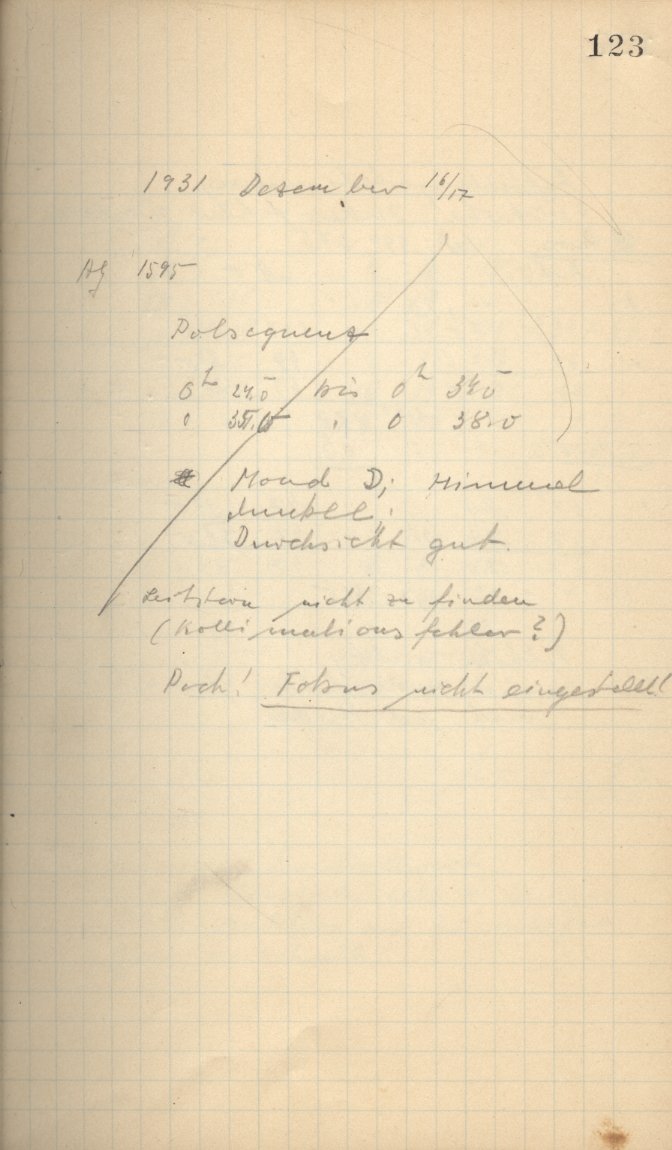 123
1931 Dezember 16/17
AG 1595
Polsequenz
0h 24.0 bis 0h 34.0
0 35.0 " 0 38.0
Mond D; Himmel
dunkel;
Durchsicht gut.
Leitstern nicht zu finden
(Kollimationsfehler?)
Pech! Fokus nicht eingestellt!